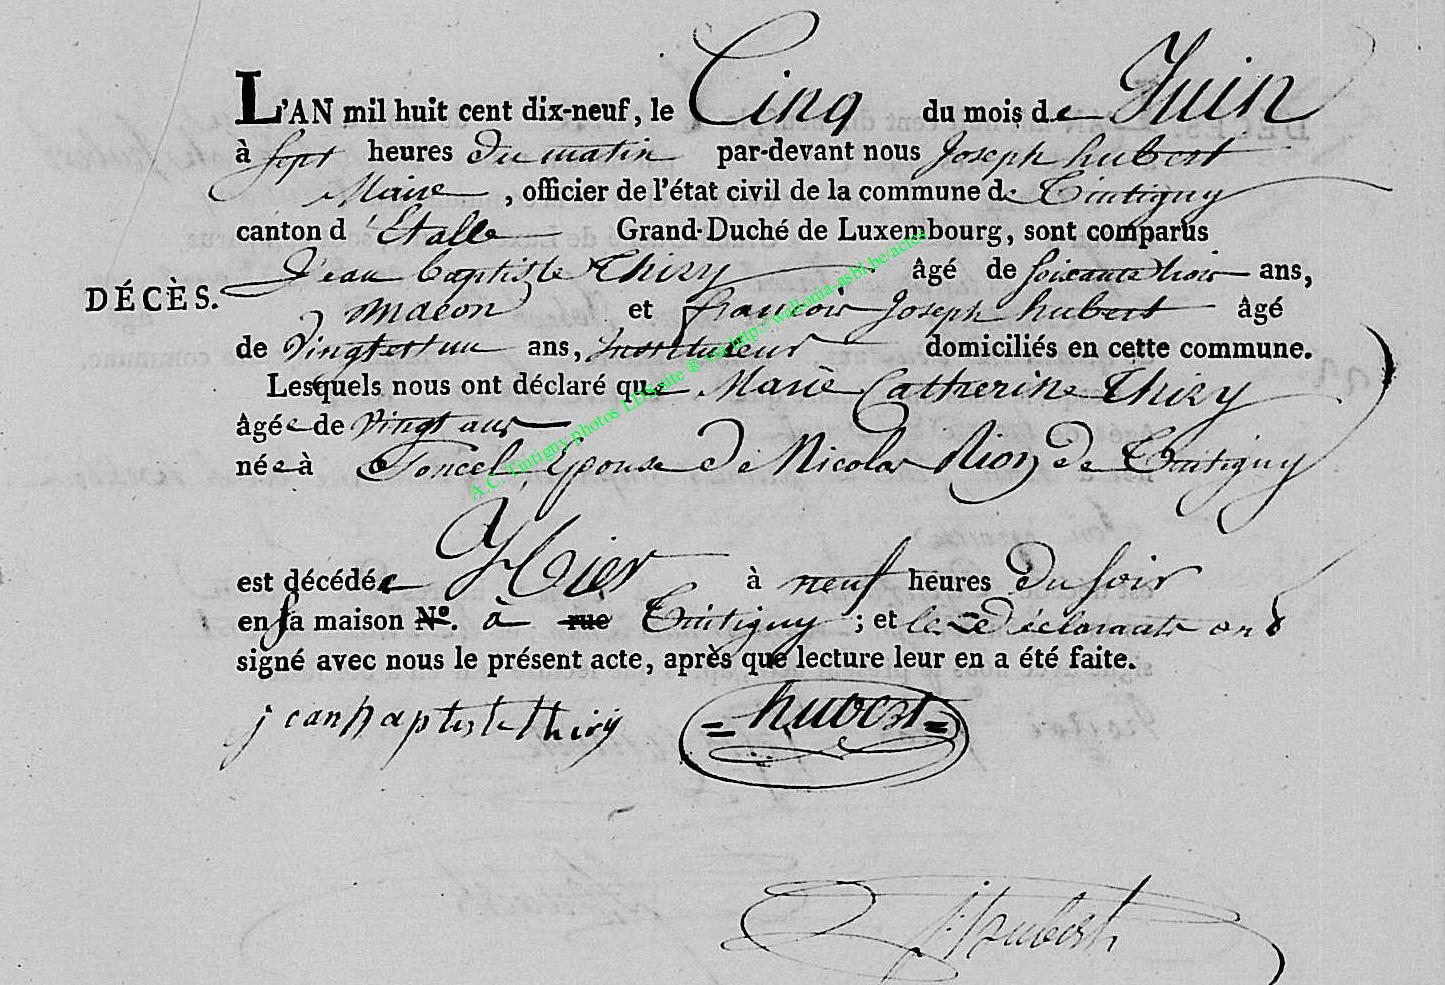 L'AN mil huit cent dix-neuf, le Cinq du mois de Juin
à sept heures du matin par-devant nous Joseph hubert
Maire, officier de l'état civil de la commune de Tintigny
canton d'Etalle Grand-Duché de Luxembourg, sont comparus
Jean Baptiste Thiry âgé de soixante trois ans,
DÉCÈS.
macon et francois Joseph hubert âgé
de vingt et un ans, instituteur domiciliés en cette commune.
Lesquels nous ont déclaré que Marie Catherine Thiry
âgée de vingt ans
née à Poncel Epouse de Nicolas Rion de Tintigny
est décédée Hier à neuf heures du soir
en sa maison N°. à rue Tintigny; et les déclarants ont
signé avec nous le présent acte, après que lecture leur en a été faite.
jean baptiste thiry hubert
J. hubert
A.C. Tintigny photos LDS site ® via http://wallonia-asbl.be/actes